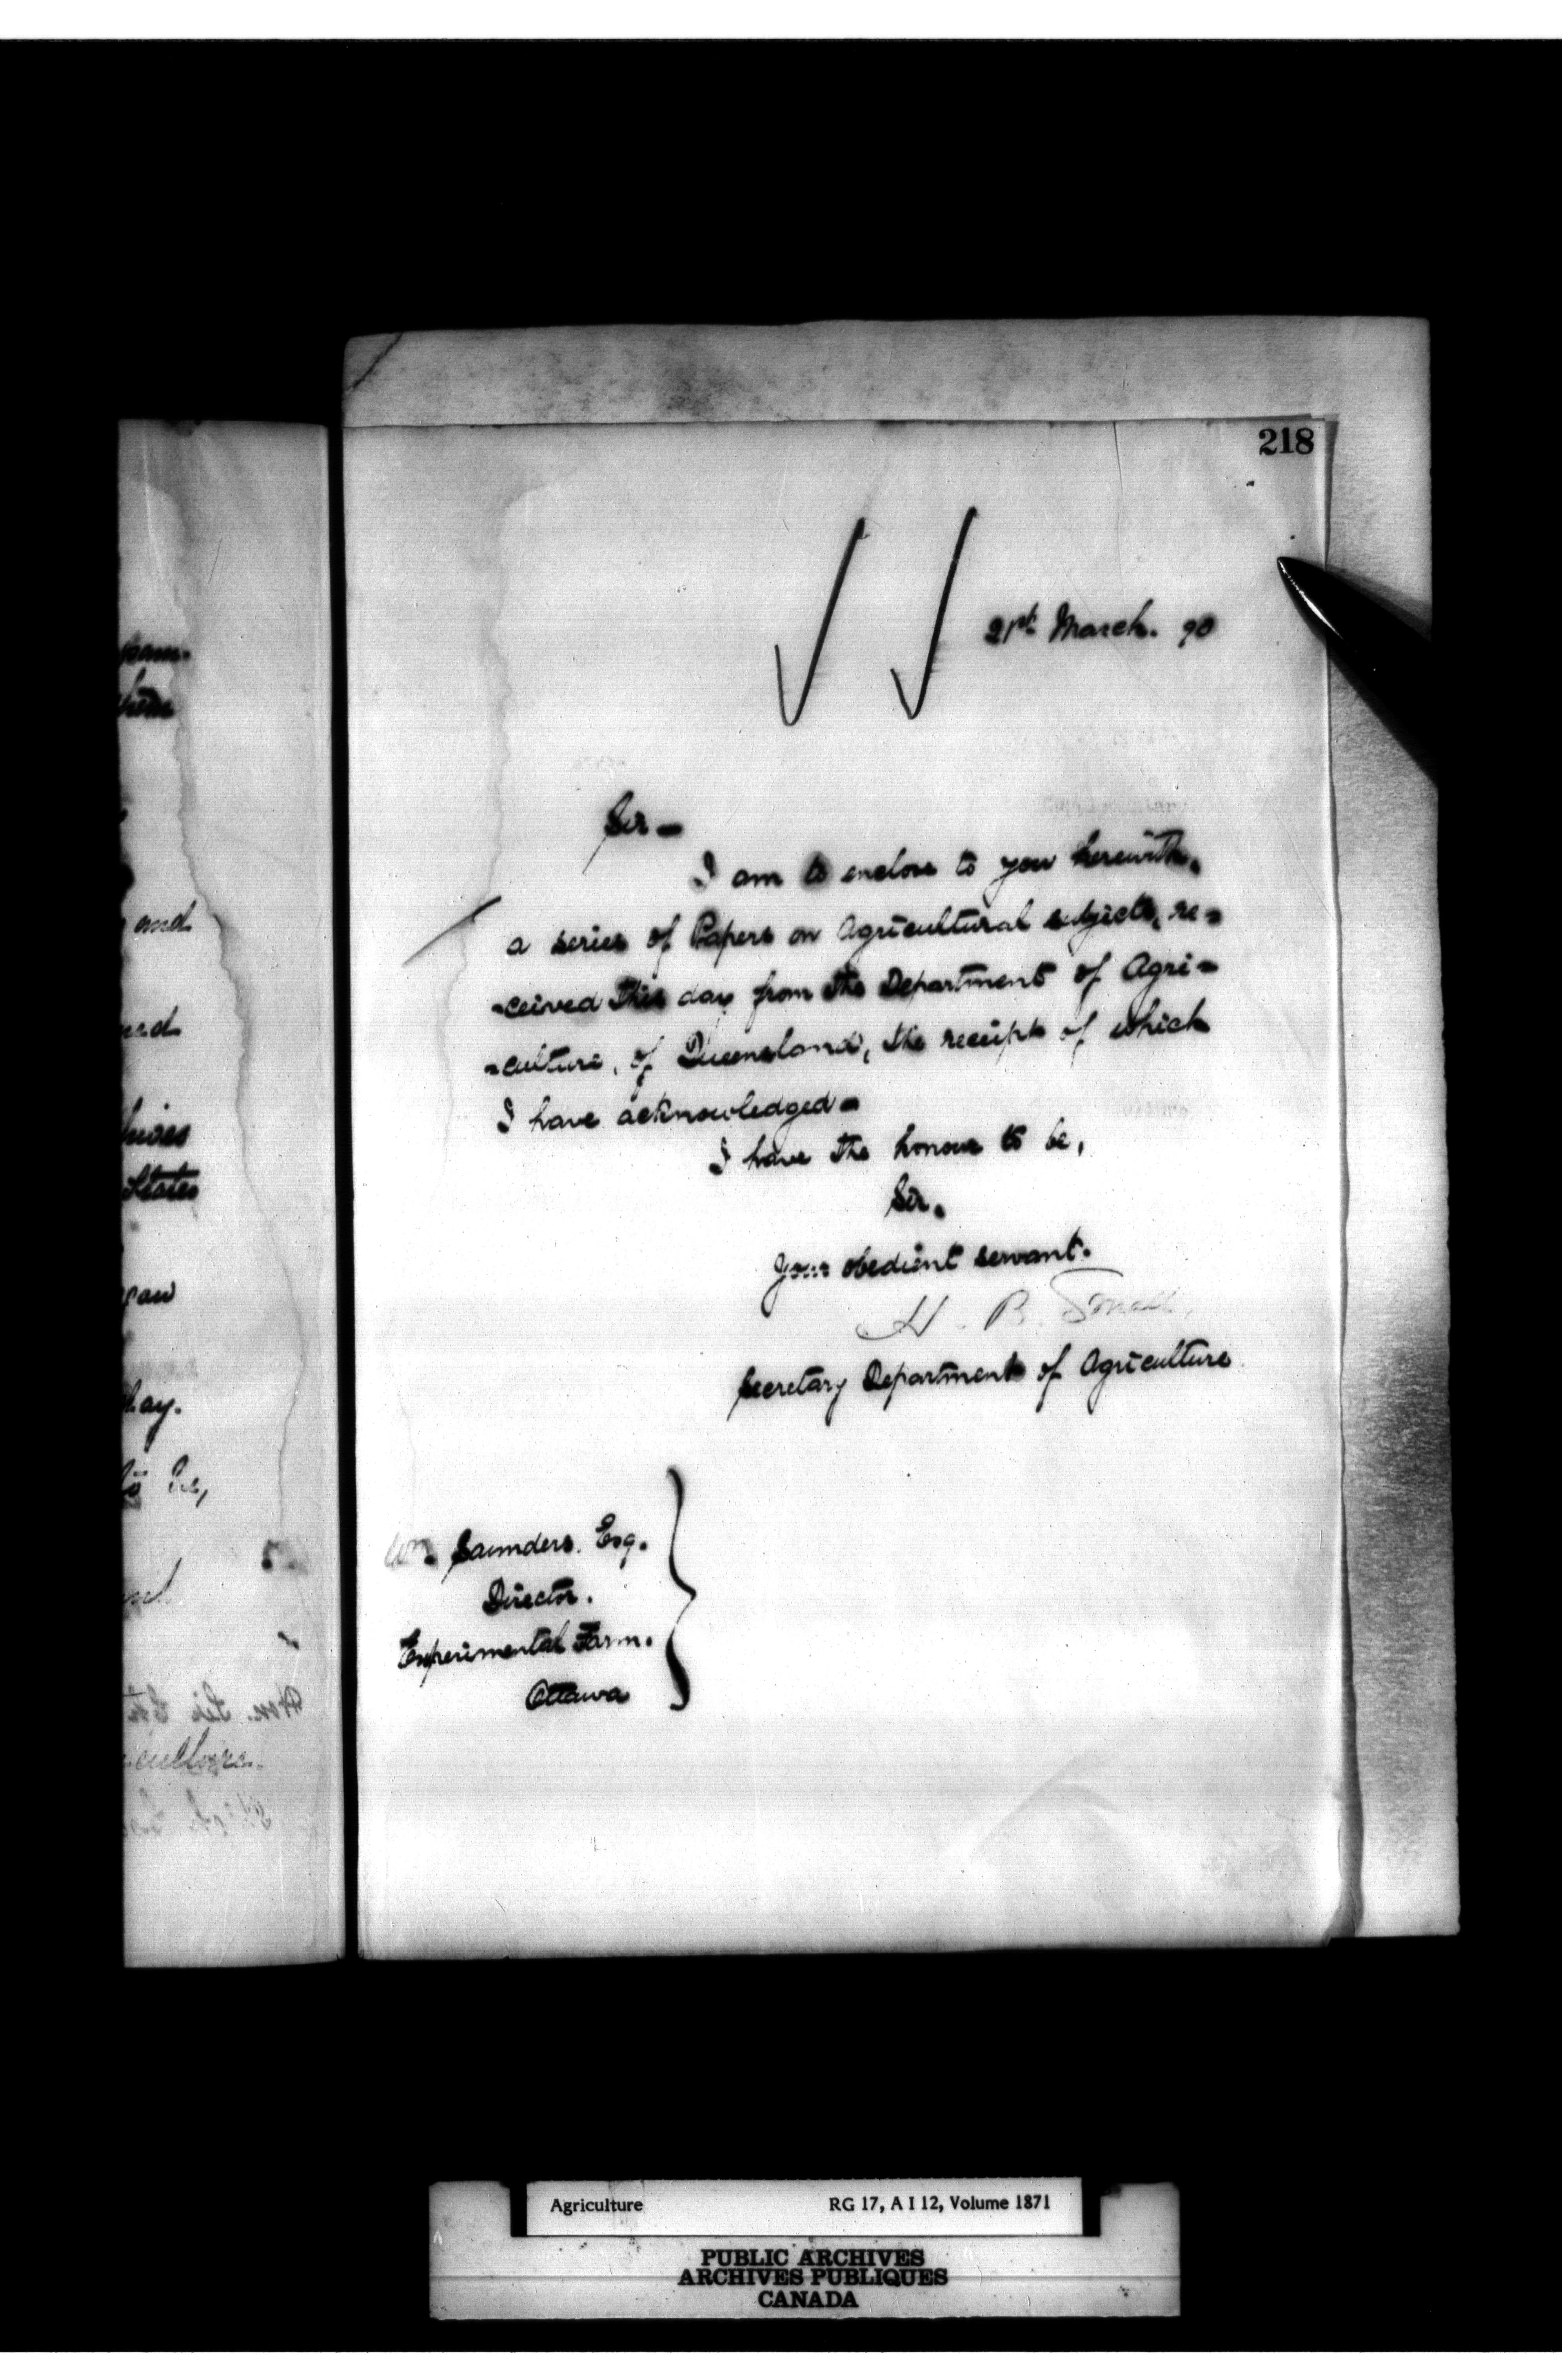 218
21st. March. 90
Sir =
I am to enclose to you herewith,
a series of Papers on Agricultural subjects, re=
=ceived this day from the Department of Agri=
=culture, of Queensland, the receipt of which
I have acknowledged =
I have the honour to be,
Sir.
Your obedient servant.
H. B. Small,
Secretary Department of Agriculture
Wm. Saunders. Esq.
Director.
Experimental Farm.
Ottawa
and
States
ay.
to be,
culture.
Agriculture RG 17, A I 12, Volume 1871
PUBLIC ARCHIVES
ARCHIVES PUBLIQUES
CANADA